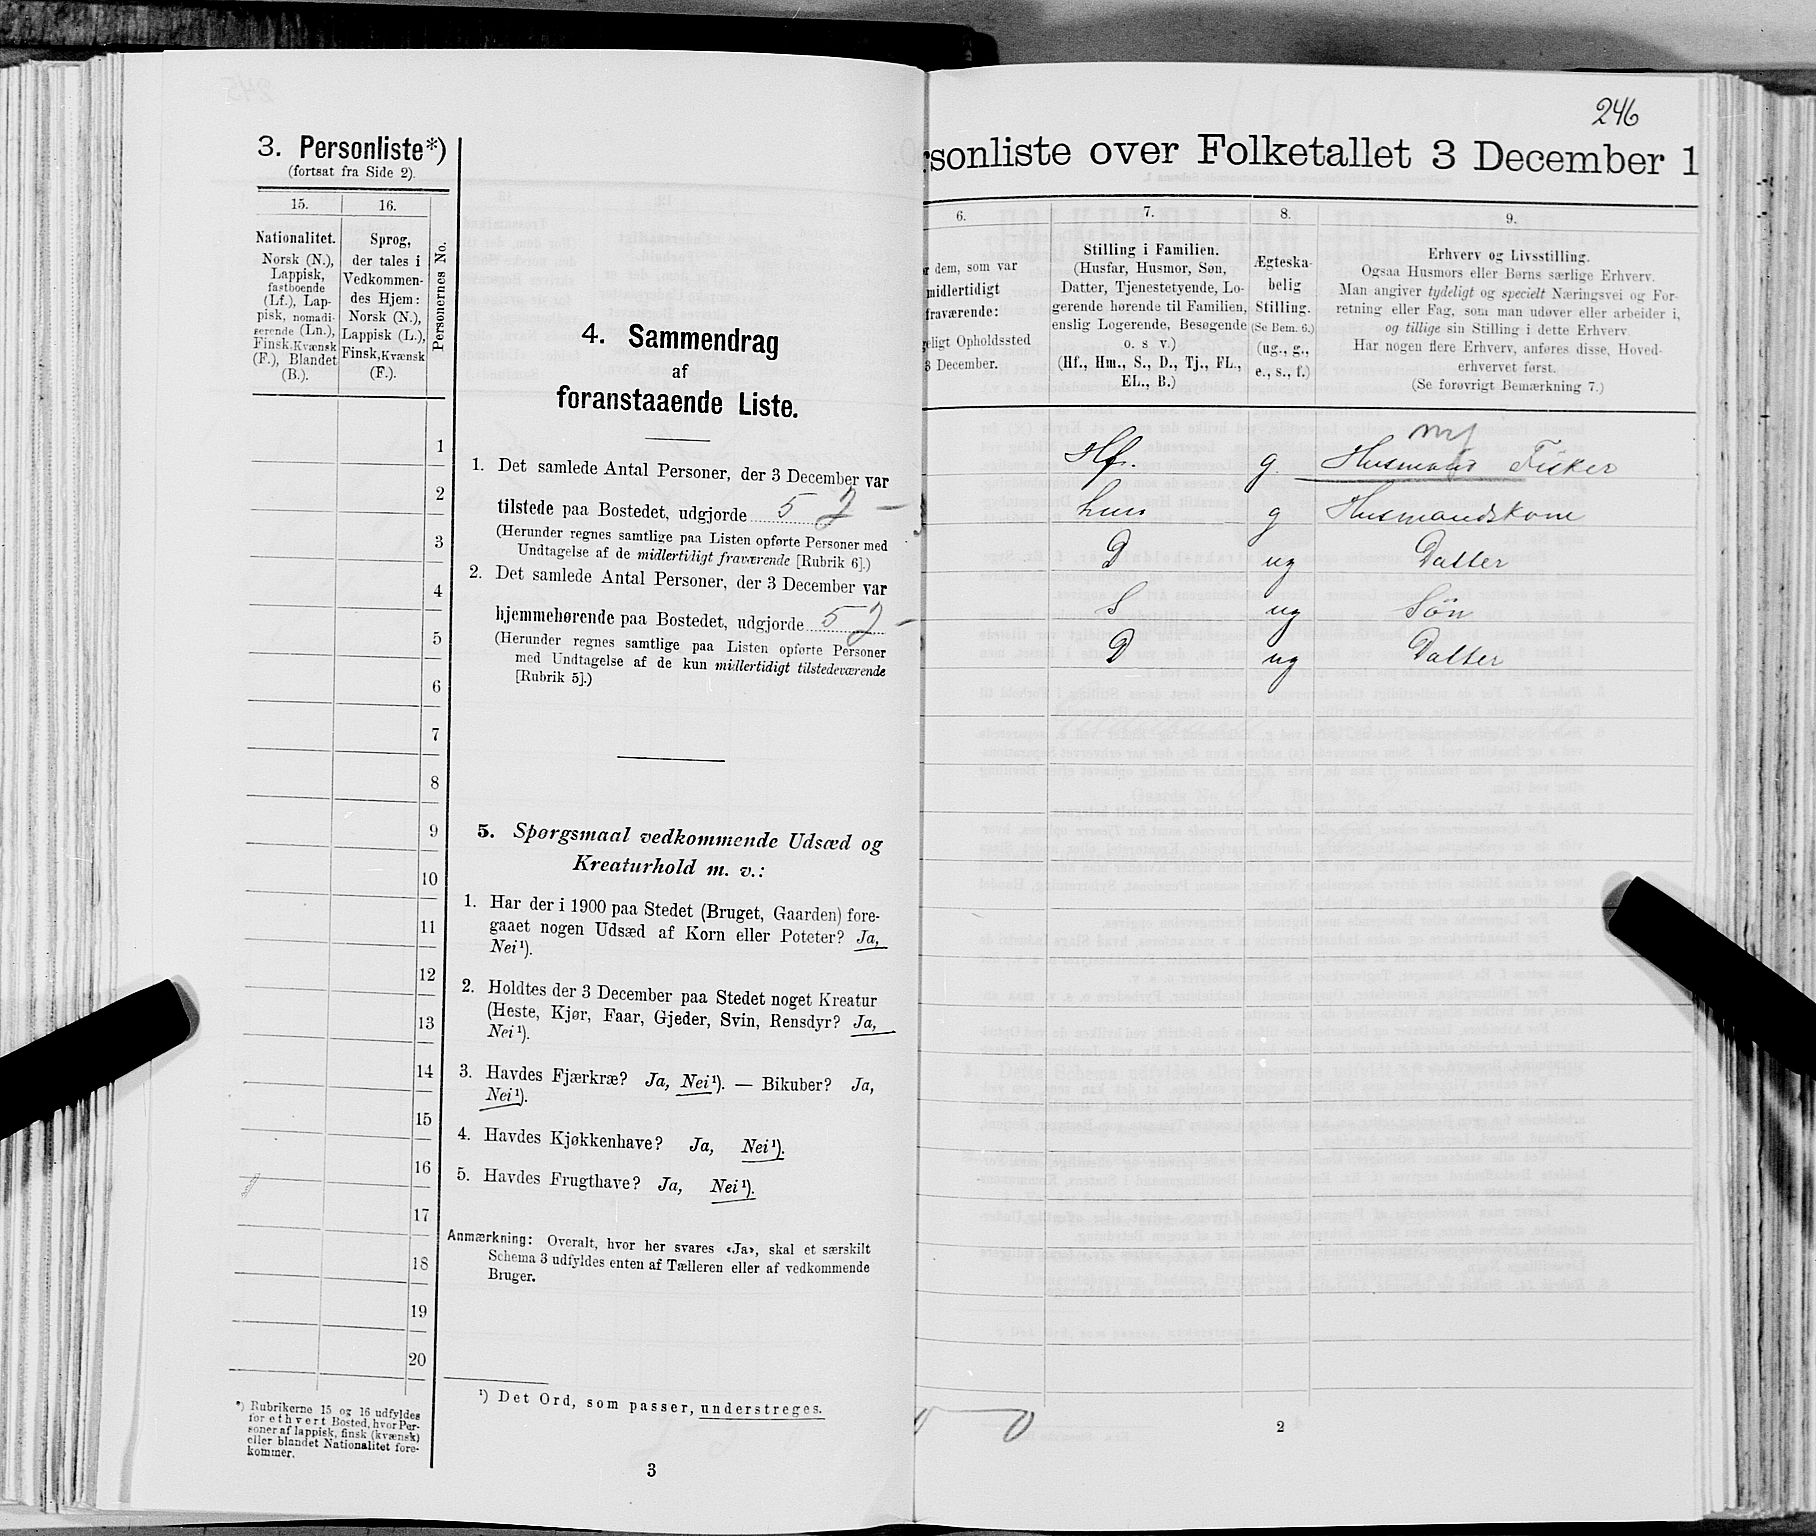 3. Personliste*)
(fortsat fra Side 2).
15.
16.
Personernes No.
Nationalitet.
Norsk (N.),
Lappisk,
fastboende
(Lf.), Lap-
pisk, nomadi-
serende (Ln.),
Finsk, Kvænsk
(F.), Blandet
(B.).
Sprog,
der tales i
Vedkommen-
des Hjem:
Norsk (N.),
Lappisk (L.),
Finsk, Kvænsk
(F.).
1
2
3
4
5
6
7
8
9
10
11
12
13
14
15
16
17
18
19
20
*) Rubrikerne 15 og 16 udfyldes
for ethvert Bosted, hvor Per-
soner af lappisk, finsk (kvænsk)
eller blandet Nationalitet fore-
kommer.
4. Sammendrag
af
foranstaaende Liste.
1. Det samlede Antal Personer, der 3 December var
tilstede paa Bostedet, udgjorde 5
(Herunder regnes samtlige paa Listen opførte Personer med
Undtagelse af de midlertidigt fraværende [Rubrik 6].)
2. Det samlede Antal Personer, der 3 December var
hjemmehørende paa Bostedet, udgjorde 5
(Herunder regnes samtlige paa Listen opførte Personer
med Undtagelse af de kun midlertidigt tilstedeværende
[Rubrik 5].)
5. Spørgsmaal vedkommende Udsæd og
Kreaturhold m. v.:
1. Har der i 1900 paa Stedet (Bruget, Gaarden) fore-
gaaet nogen Udsæd af Korn eller Poteter? Ja,
Nei¹).
2. Holdtes der 3 December paa Stedet noget Kreatur
(Heste, Kjør, Faar, Gjeder, Svin, Rensdyr? Ja,
Nei¹).
3. Havdes Fjærkræ? Ja, Nei¹). — Bikuber? Ja,
Nei¹).
4. Havdes Kjøkkenhave? Ja, Nei¹).
5. Havdes Frugthave? Ja, Nei¹).
Anmærkning: Overalt, hvor her svares «Ja», skal et særskilt
Schema 3 udfyldes enten af Tælleren eller af vedkommende
Bruger.
¹) Det Ord, som passer, understreges.
3
246
rsonliste over Folketallet 3 December 1
6.
7.
8.
9.
r dem, som var
midlertidigt
fraværende:
geligt Opholdssted
3 December.
Stilling i Familien.
(Husfar, Husmor, Søn,
Datter, Tjenestetyende, Lo-
gerende hørende til Familien,
enslig Logerende, Besøgende
o. s v.)
(Hf., Hm., S., D., Tj., FL.,
EL., B.)
Ægteska-
belig
Stilling.
(Se Bem. 6.)
(ug., g.,
e., s., f.)
Erhverv og Livsstilling.
Ogsaa Husmors eller Børns særlige Erhverv.
Man angiver tydeligt og specielt Næringsvei og For-
retning eller Fag, som man udøver eller arbeider i,
og tillige sin Stilling i dette Erhverv.
Har nogen flere Erhverv, anføres disse, Hoved-
erhvervet først.
(Se forøvrigt Bemærkning 7.)
Hf. g. Husmand Fisker
g Husmandskone
D ug Datter
S ug Søn
D ug Datter
2